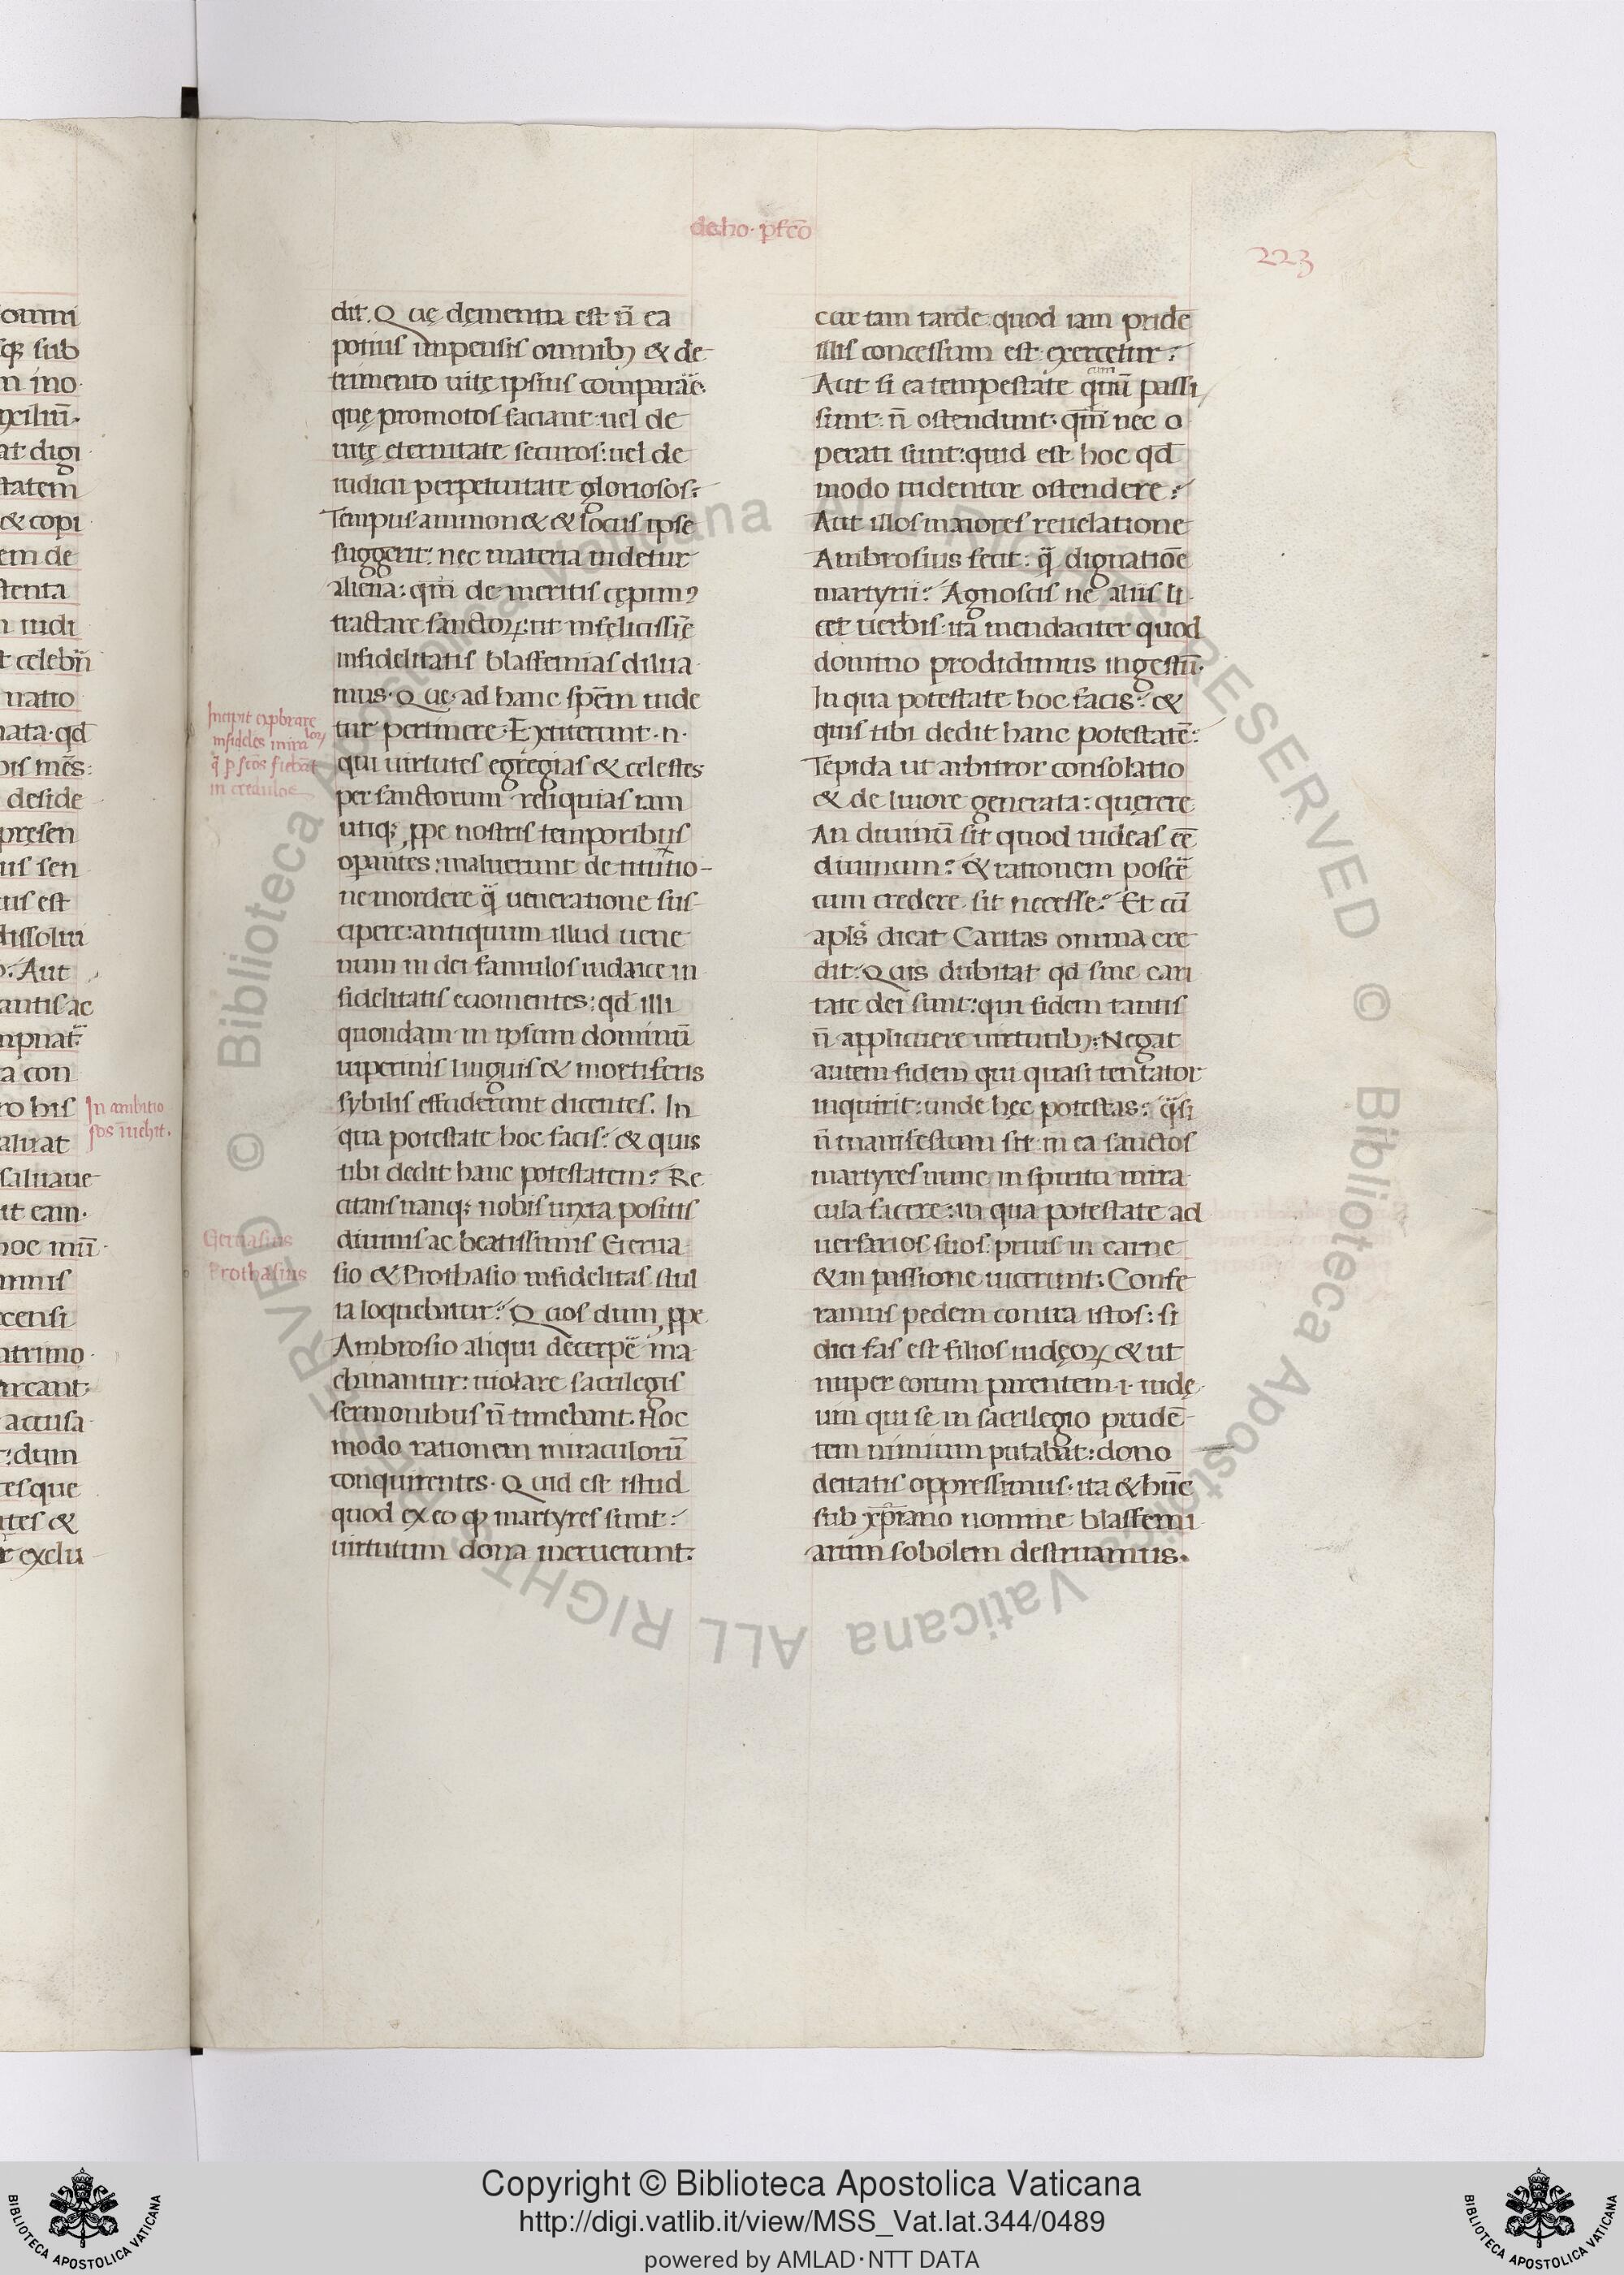 de ho. pfcō
223
dit. Quę dęmentia est n̄ ea
potius impensis omnibꝫ & de
trimento uitę ipsius comparāe.
quę promotos faciant: uel de
uitę eternitate securos: uel de
iudicii perpetuitate gloriosos?
Tempus ammonet & locus ipse
suggerit: nec materia uidetur
aliena: qm̄ de meritis cępimꝰ
tractare sanctoꝝ: ut infęlicissīe
infidelitatis blasfemias dilua
mus. Que ad hanc spēm uide
tur pertinere. Extiterunt .n.
qui uirtutes egregias & celestes
per sanctorum reliquias tam
utiqꝫ ꝓpe nostris temporibus
opantes: maluerunt de
ne mordere q̄ ueneratione sus
cipere: antiquum illud uene
num in dei famulos iudaice in
fidelitatis euomentes: qd̄ illi
quondam in ipsum dominū
uiperinis linguis & mortiferis
sybilis effuderunt dicentes. In
qua potestate hoc facis? & quis
tibi dedit hanc potestatem? Re
citans nanqꝫ nobis iuxta positis
diuinis ac beatissimis Gerua
sio & Prothasio infidelitas stul
ta loquebatur? Quos dum ꝓpe
Ambrosio aliqui decerpē ma
chinantur: uiolare sacrilegis
sermonibus n̄ timebant. Hoc
modo rationem miraculorū
conquirentes. Quid est istud
quod ex eo ꝙ martyres sunt?
uirtutum dona meruerunt:
Incipit exp̄brare
infideles miraloꝝ
q̄ p scōs fiebāt
in credulos
Geruasius
Prothasius
cur tam tarde quod iam pridē
illis concessum est exercetur?
cum
Aut si ea tempestate quū passi
sunt: n̄ ostendunt. qm̄ nec o
perati sunt: quid est hoc qd̄
modo uidentur ostendere?
Aut illos maiores reuelatione
Ambrosius fecit: q̄ dignatiōe
martyrii? Agnoscis ne aliis li
cet uerbis: ita mendaciter quod
domino prodidimus ingestū.
In qua potestate hoc facis? &
quis tibi dedit hanc potestatē?
Tepida ut arbitror consolatio
& de liuore generata: quęrere
An diuinū sit quod uideas eē
diuinum? & rationem poscē
cum credere sit necesse? Et cū
apl̄s dicat Caritas omnia cre
dit. Quis dubitat qd̄ sine cari
tate dei sunt: qui fidem tantis
n̄ applicuere uirtutibꝫ: Negat
autem fidem qui quasi tentator
inquirit: unde hęc potestas: q̄si
n̄ manifestum sit in ea sanctos
martyres nunc in spiritu mira
cula facere: in qua potestate ad
uersarios suos prius in carne
& in passione uicerunt: Confe
ramus pedem contra istos: si
dici fas est filios iudęoꝝ & ut
nuper eorum parentem .i. iudę
um qui se in sacrilegio prudē
tem nimium putabat: dono
deitatis oppressimus. ita & hūc
sub xp̄iano nomine blasfemi
arum sobolem destruamus.
In ambitio
sos īuehit.
Copyright © Biblioteca Apostolica Vaticana
http://digi.vatlib.it/view/MSS_Vat.lat.344/0489
powered by AMLAD·NTT DATA
BIBLIOTECA APOSTOLICA VATICANA
BIBLIOTECA APOSTOLICA VATICANA
© Biblioteca Apostolica Vaticana ALL RIGHTS RESERVED
© Biblioteca Apostolica Vaticana ALL RIGHTS RESERVED